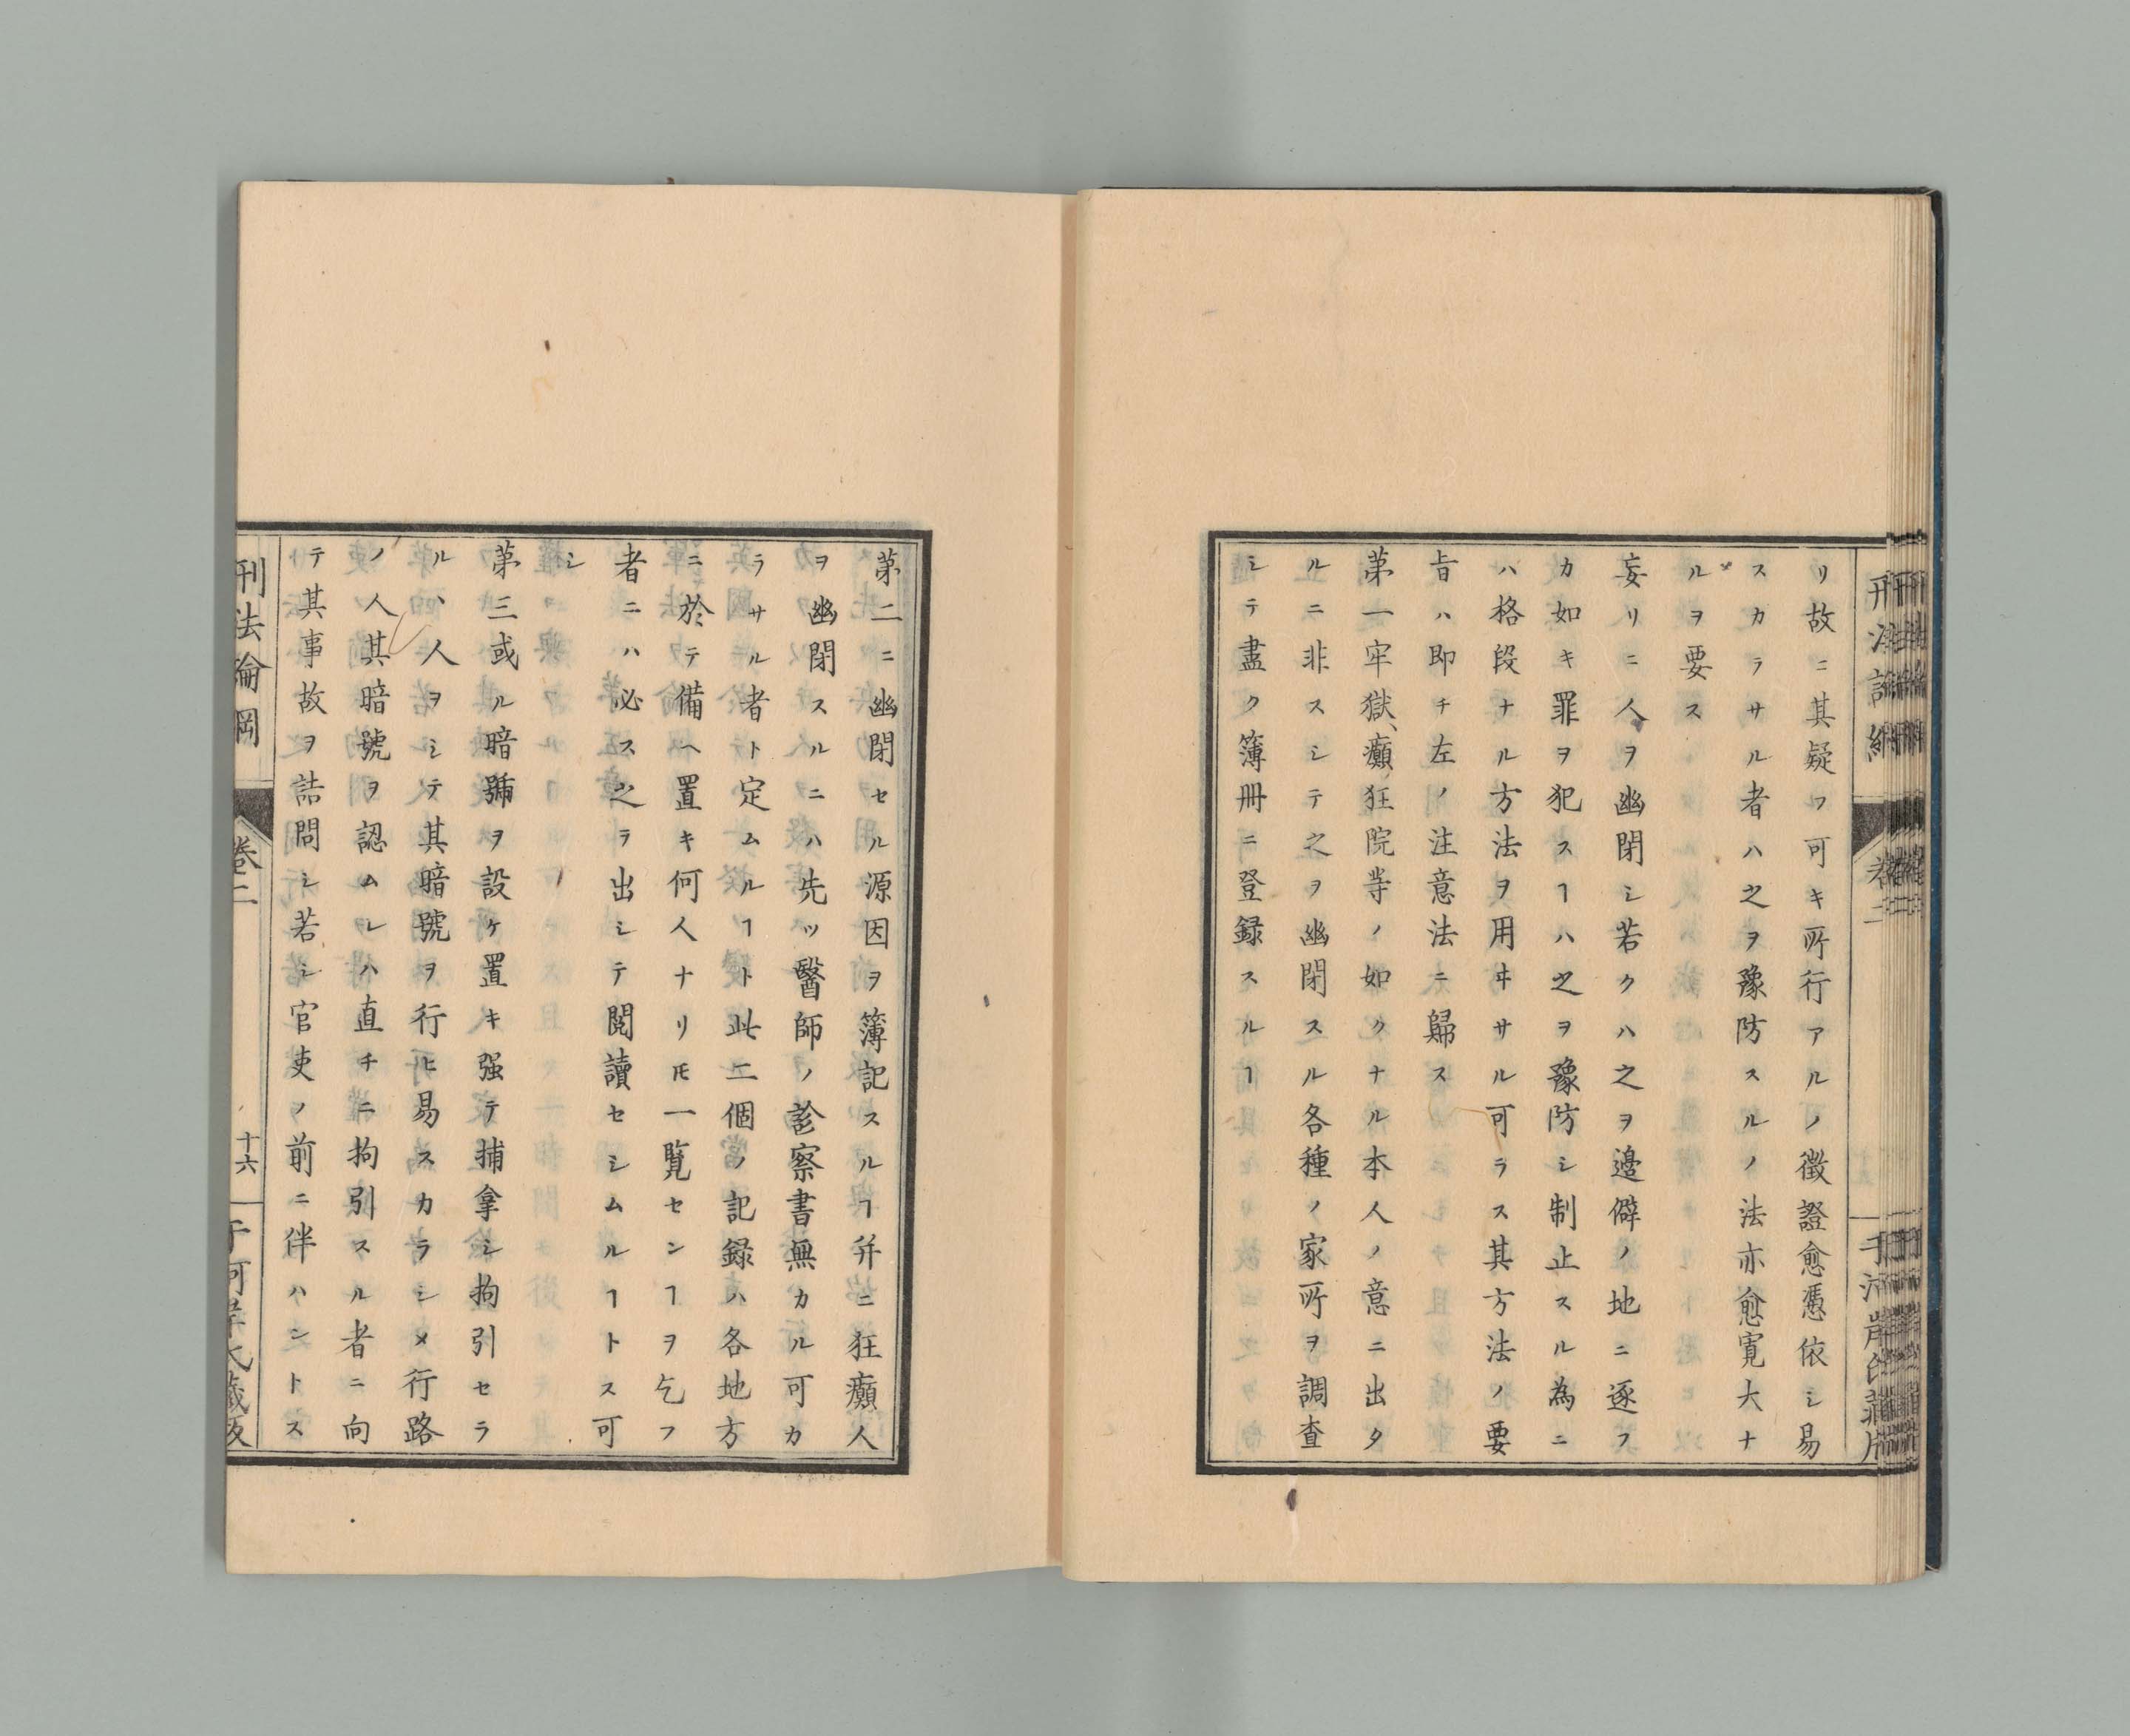 リ故ニ其疑フ可キ所行アルノ徴證愈憑依シ易
スカラサル者ハ之ヲ豫防スルノ法亦愈寛大ナ
ルヲ要ス
妄リニ人ヲ幽閉シ若クハ之ヲ邊僻ノ地ニ逐フ
カ如キ罪ヲ犯スヿハ之ヲ豫防シ制止スル為ニ
ハ格段ナル方法ヲ用ヰサル可ラス其方法ノ要
旨ハ即チ左ノ注意法ニ歸ス
第一牢獄、癲狂院等ノ如クナル本人ノ意ニ出タ
ルニ非スシテ之ヲ幽閉スル各種ノ家所ヲ調査
シテ盡ク簿冊ニ登録スルヿ
第二ニ幽閉セル源因ヲ簿記スルヿ并ニ狂癲人
ヲ幽閉スルニハ先ツ醫師ノ診察書無カル可カ
ラサル者ト定ムルヿト此二個ノ記録ハ各地方
ニ於テ備ヘ置キ何人ナリモ一覧センヿヲ乞フ
者ニハ必ス之ヲ出シテ閲讀セシムルヿトス可
シ
第三或ル暗號ヲ設ケ置キ强テ捕拿シ拘引セラ
ルヽ人ヲシテ其暗號ヲ行ヒ易スカラシメ行路
ノ人其暗號ヲ認ムレハ直チニ拘引スル者ニ向
テ其事故ヲ詰問シ若シ官吏ノ前ニ伴ハントス
刑法論綱
卷二
十六